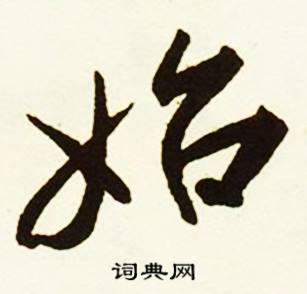 始
词典网